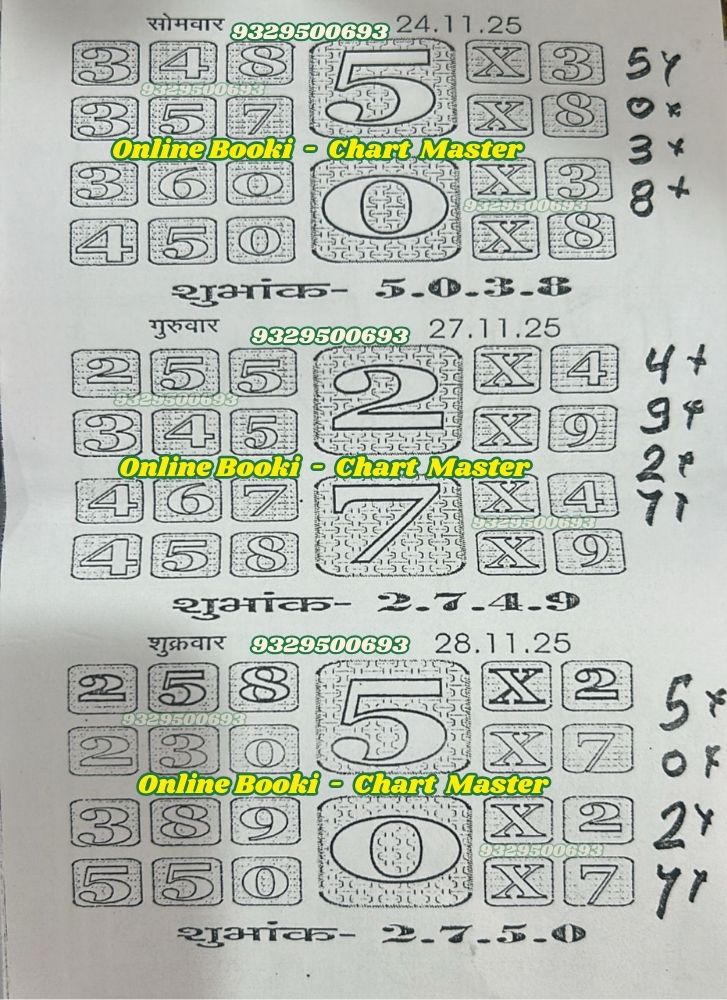 सोमवार 9329500693 24.11.25
3 4 8 5 X 3 5x
9329500693
3 5 7 X 8 0x
Online Booki - Chart Master 3x
3 6 0 0 X 3 8x
9329500693
4 5 0 X 8
शुभांक- 5.0.3.8
गुरुवार 9329500693 27.11.25
2 5 5 2 X 4 4x
9329500693
3 4 5 X 9 9x
Online Booki - Chart Master 2x
4 6 7 7 X 4 7x
9329500693
4 5 8 X 9
शुभांक- 2.7.4.9
शुक्रवार 9329500693 28.11.25
2 5 8 5 X 2 5x
9329500693
2 3 0 X 7 0x
Online Booki - Chart Master
3 8 9 0 X 2 2x
9329500693
5 5 0 X 7 7x
शुभांक- 2.7.5.0